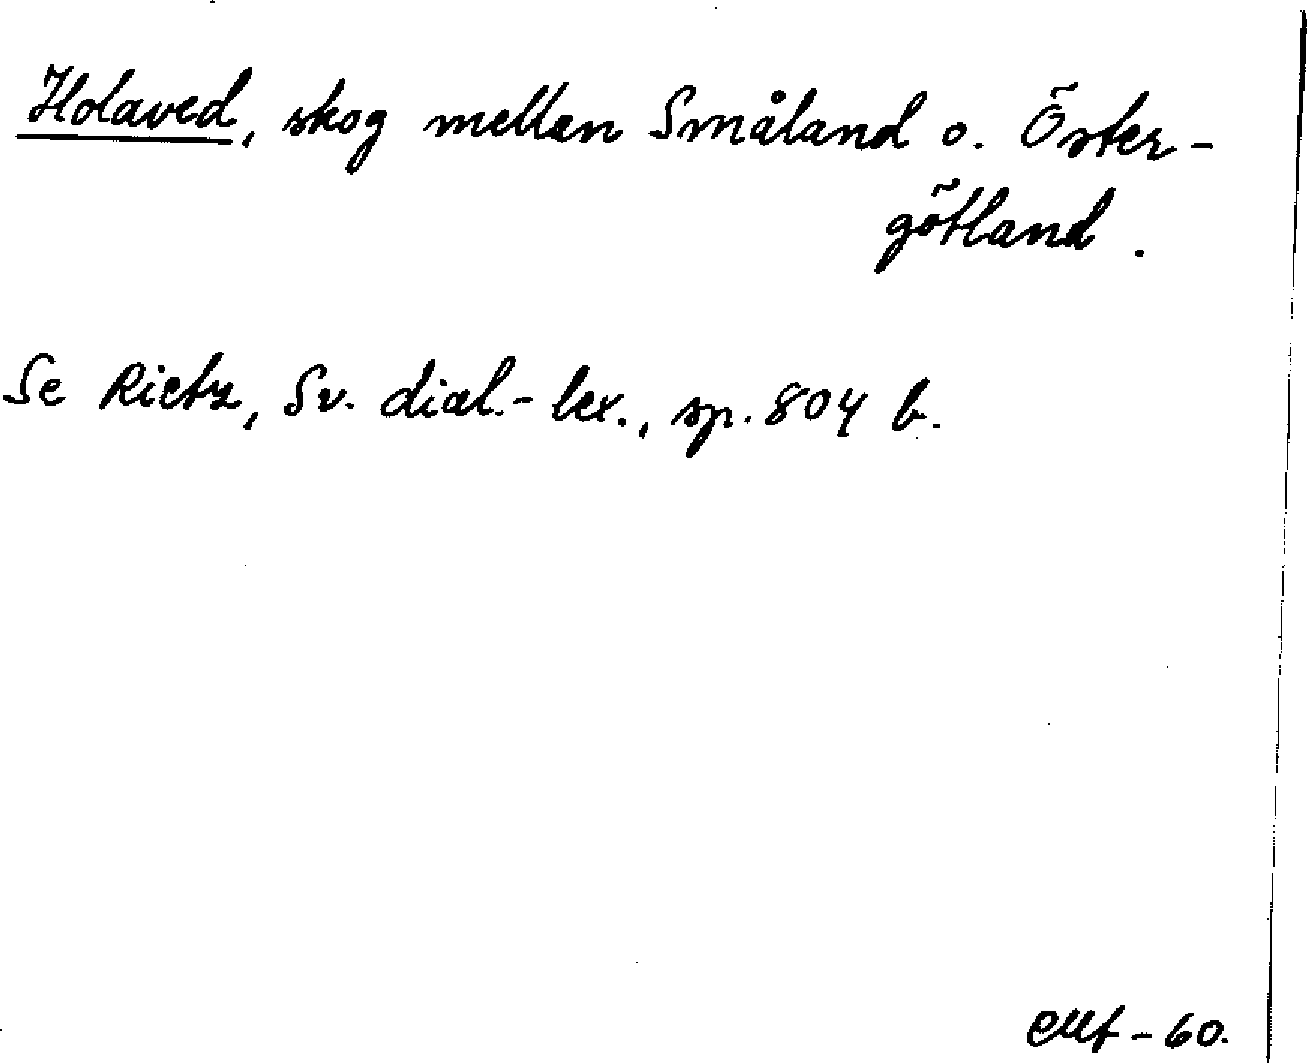 Holaved, skog mellan Småland o. Öster-
götland.
Se Rietz, Sv. dial.-lex., sp. 804 b.
-60.